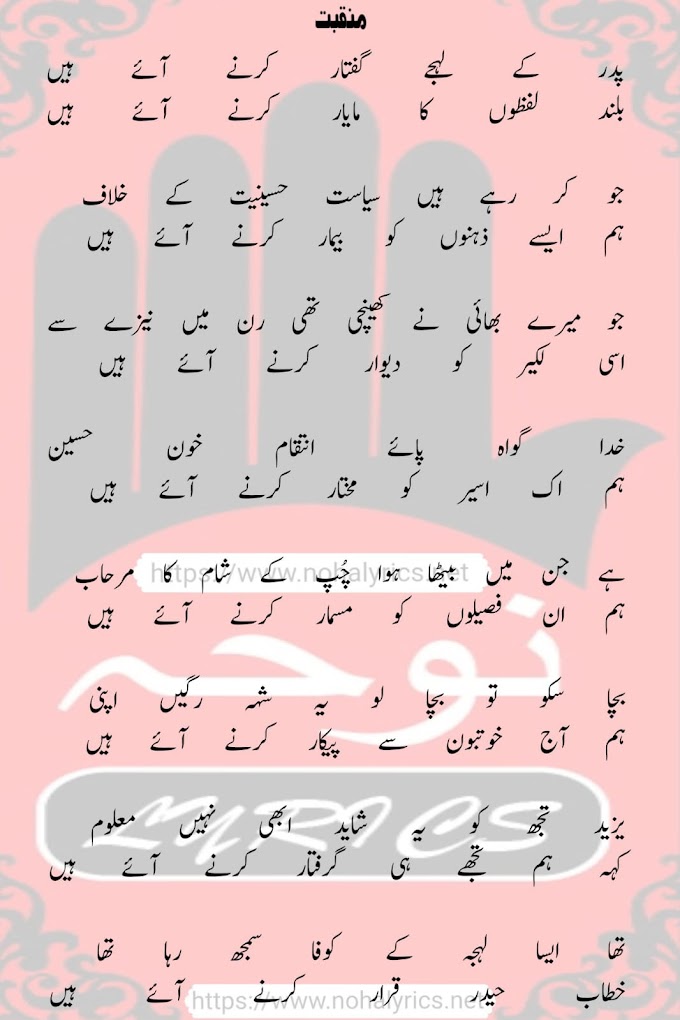 منقبت
پدر کے لہجے گفتار کرنے آئے ہیں
بلند لفظوں کا مایار کرنے آئے ہیں
جو کر رہے ہیں سیاست حسینیت کے خلاف
ہم ایسے ذہنوں کو بیمار کرنے آئے ہیں
جو میرے بھائی نے کھینچی تھی رن میں نیزے سے
اسی لکیر کو دیوار کرنے آئے ہیں
خدا گواہ پائے انتقام خون حسین
ہم اک اسیر کو مختار کرنے آئے ہیں
ہے جن میں بیٹھا ہوا چُپ کے شام کا مرحاب
https://www.nohalyrics.net
ہم ان فصیلوں کو مسمار کرنے آئے ہیں
نوحہ
بچا سکو تو بچا لو یہ شہہ رگیں اپنی
ہم آج خوتبون سے پیکار کرنے آئے ہیں
LYRICS
یزید تجھ کو یہ شاید ابھی نہیں معلوم
کہہ ہم تجھے ہی گرفتار کرنے آئے ہیں
تھا ایسا لہجہ کے کوفا سمجھ رہا تھا
خطاب حیدر قرار کرنے آئے ہیں
https://www.nohalyrics.net